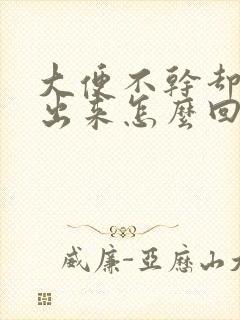 大便不幹却
出来怎麼回
威廉-亞歷山大